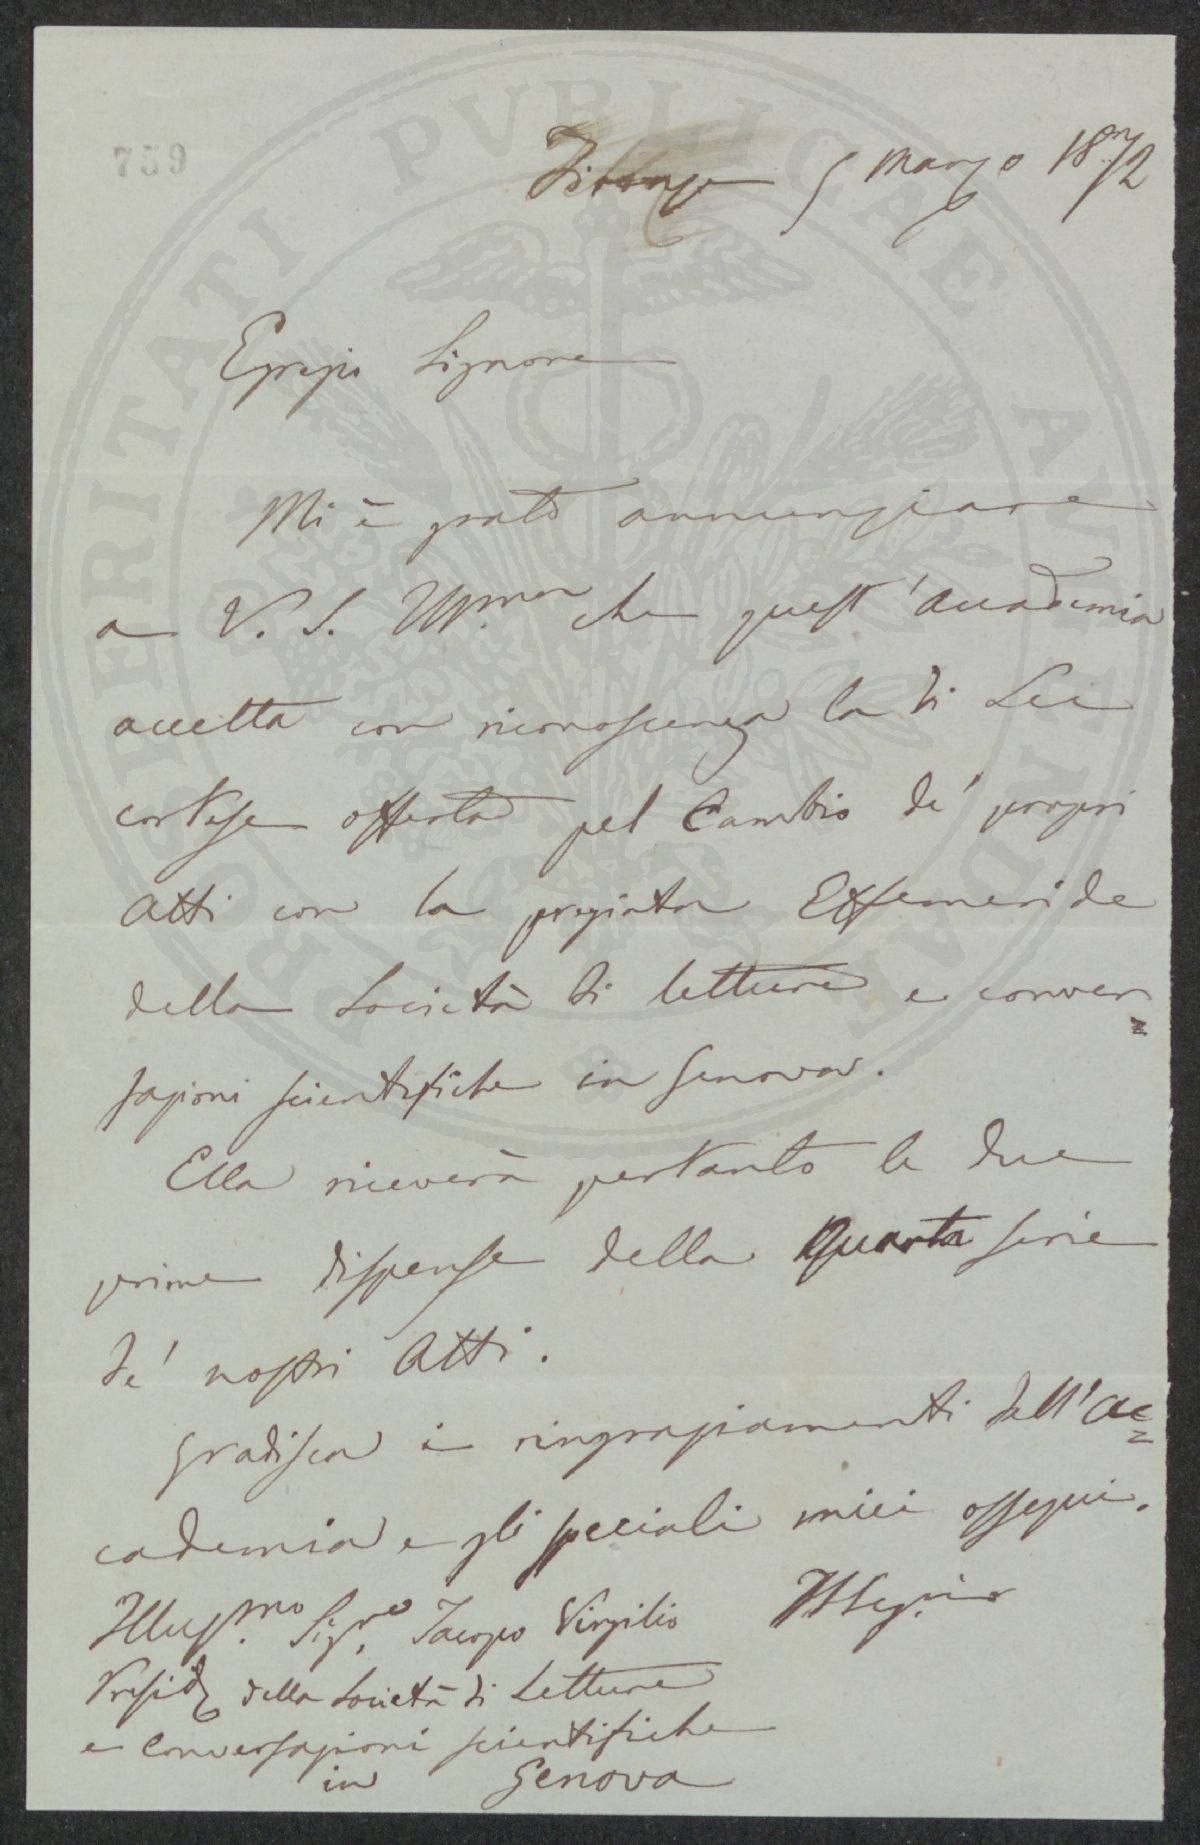 759
Firenze 5 Marzo 1872
Egregio Signore
Mi è grato annunziare
a V. S. Illma che quest'Accademia
accetta con riconoscenza la di Lei
cortese offerta pel Cambio de' propri
Atti con la pregiata Effemeride
della Società di letture e conver=
sazioni scientifiche in Genova.
Ella riceverà pertanto le due
prime dispense della Quarta serie
de' nostri Atti.
Gradisca i ringraziamenti dell'Ac=
cademia e gli speciali miei ossequi.
Illusmo Sigre Jacopo Virgilio
Presid della Società di Letture
e Conversazioni scientifiche
in Genova
PROSPERITATI PVBLICAE AVGENDAE